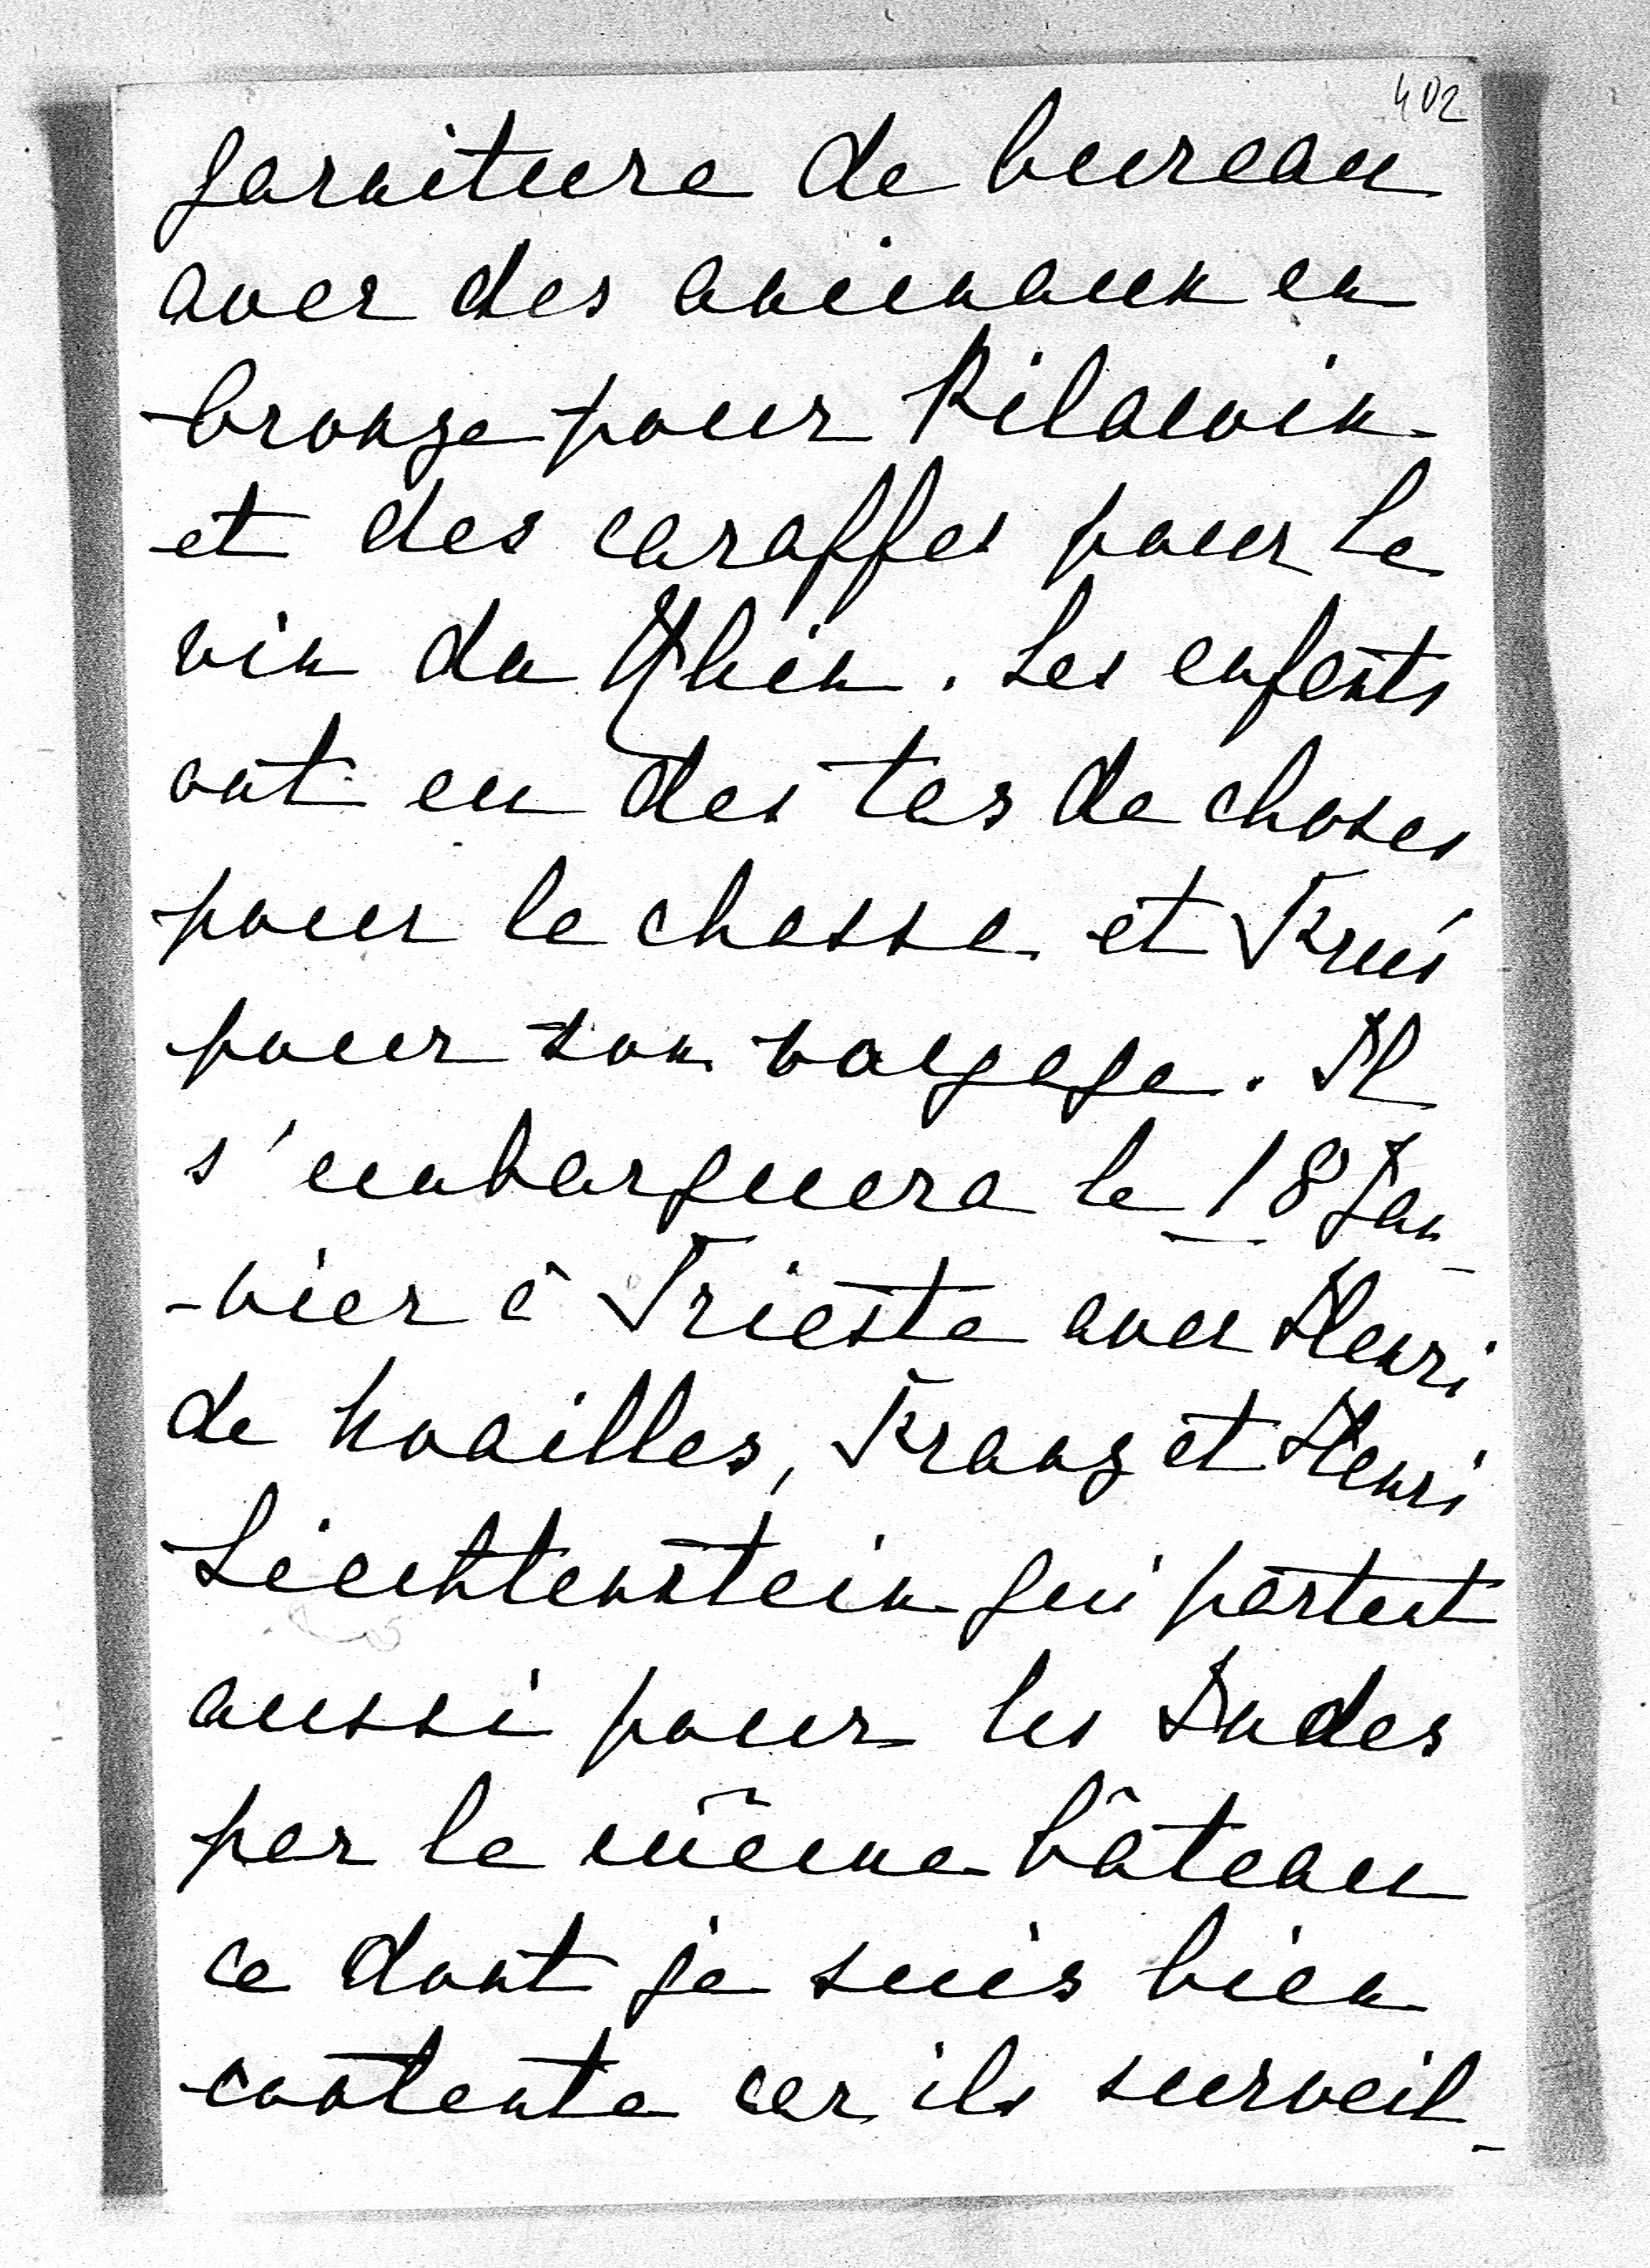 402
garniture de bureau
avec des animaux en
bronze pour Pilawin
et des caraffes pour le
vin du Rhin. Les enfants
ont eu des tas de choses
pour la chasse et
pour son voyage. Il
s'embarquera le 18 Jan-
-vier à Trieste avec Henri
de Noailles, Franz et Henri
Liechtenstein qui partent
aussi pour les Indes
par le même bâteau
ce dont je suis bien
contente car ils surveil-